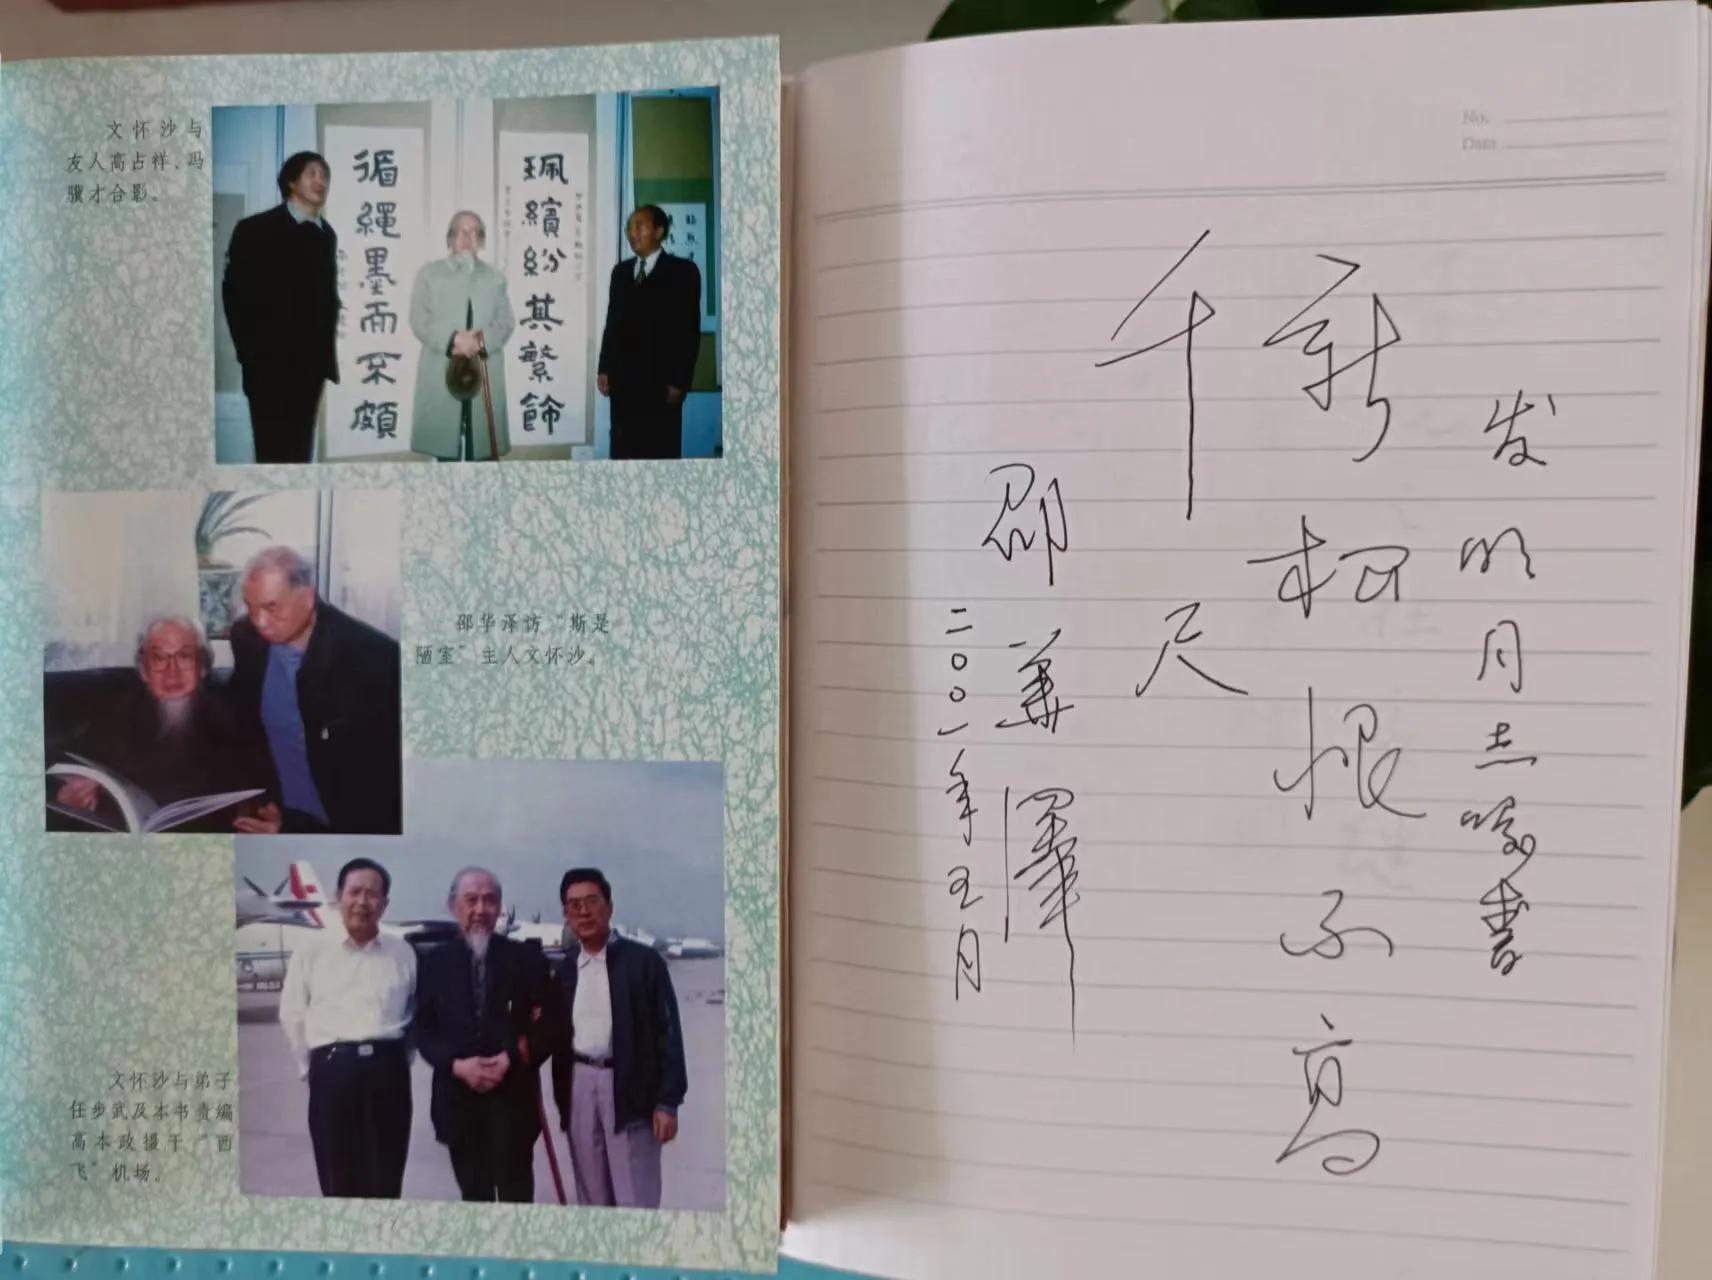 文怀沙与
友人高占祥、冯
骥才合影。
珮繽紛其繁飾
循繩墨而不頗
邵华泽访“斯是
陋室”主人文怀沙。
文怀沙与弟子
任步武及本书责编
高本政摄于“西
飞”机场。
No.
Date
发明同志嘱书
新松恨不高
千尺
邵華澤
二〇〇一年五月